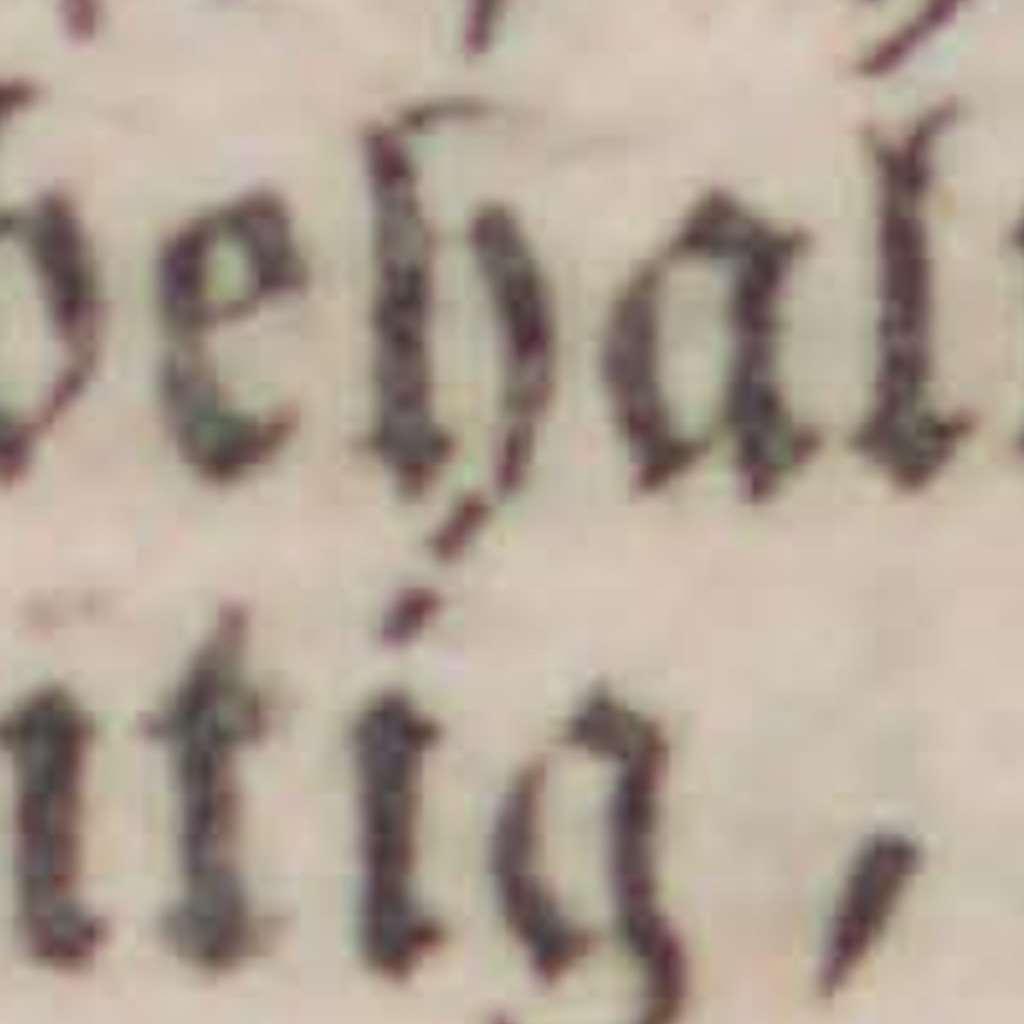 behal
ntig,